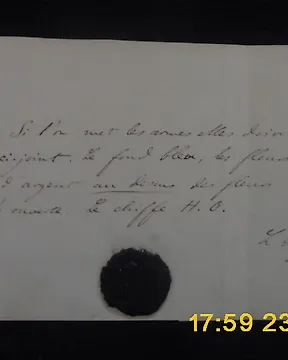 Si l'on met les armes elles doiv
ci-joint. Le fond bleu, les fleurs
d'argent au dessus des fleurs
Le chiffre H. O.
17:59 23